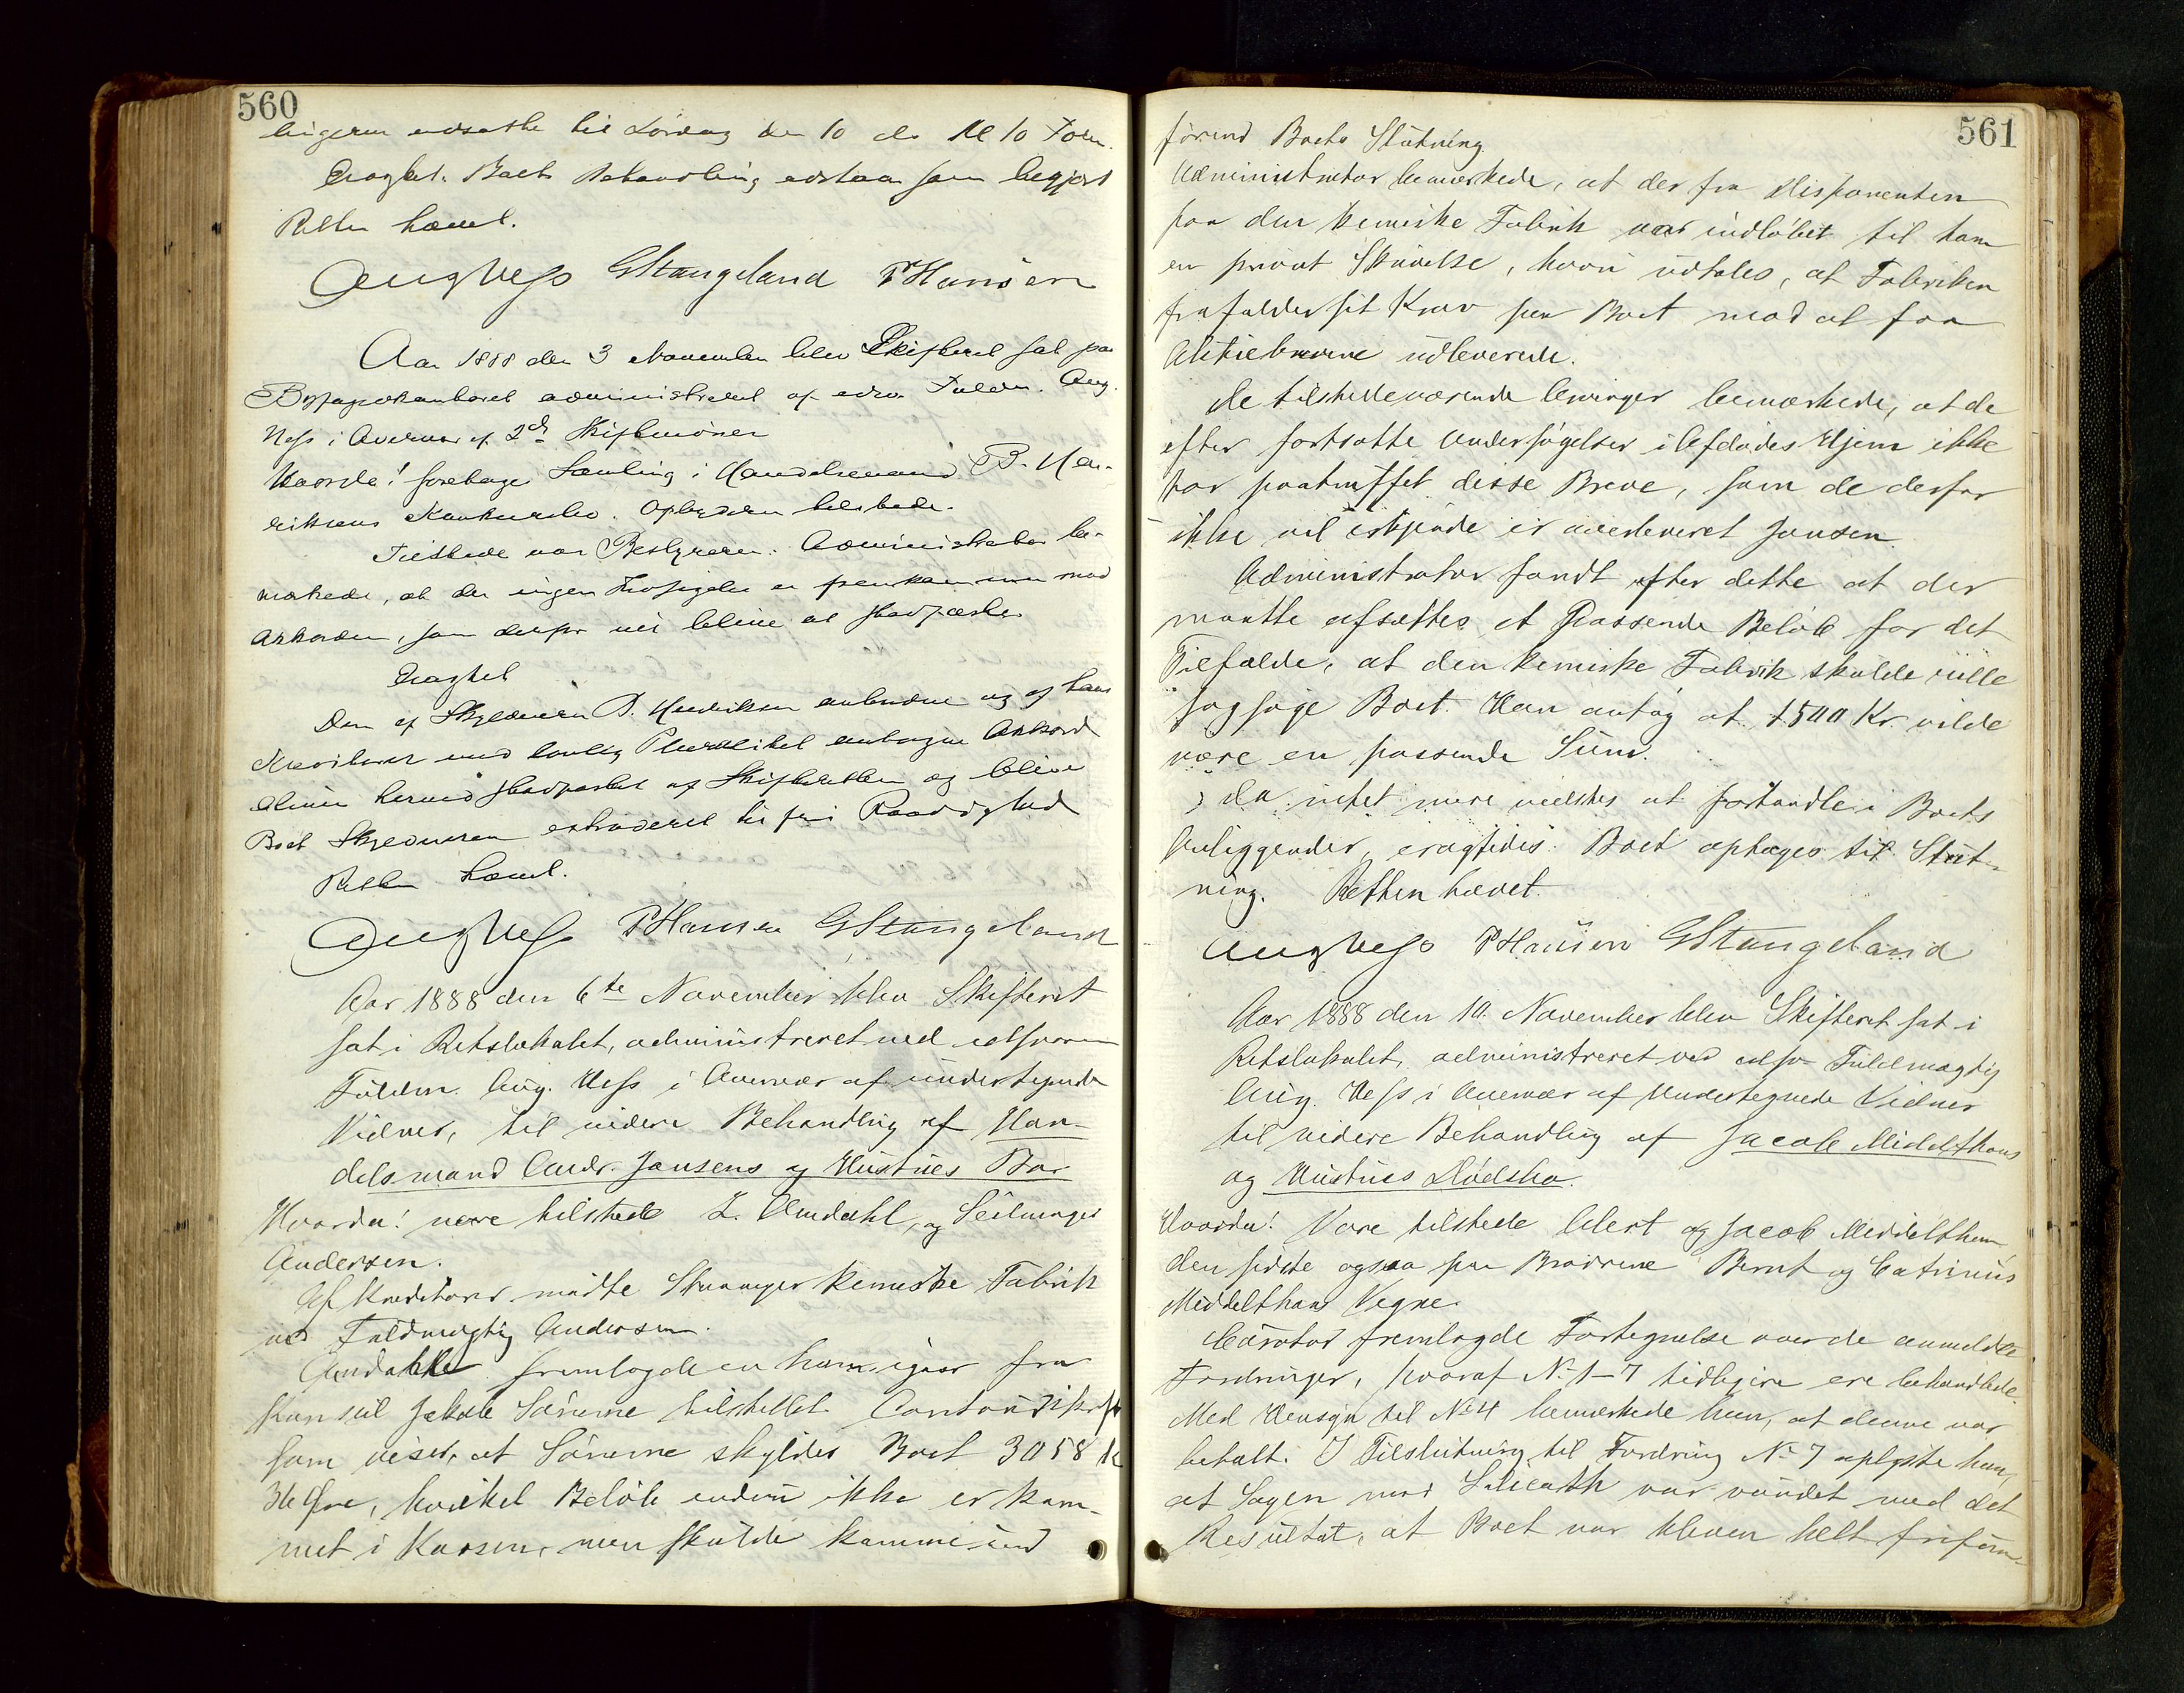 560
lingerne udsatte til Lördag den 10 ds Kl 10 Form.
Eragtet. Boets Behandling udstaar som begjært
Retten hævet.
Aug Ness GStangeland PHansen
Aar 1888 den 3 November blev Skifteret sat paa
Byfogedkontoret administreret af edsv. Fuldm. Aug.
Ness i Overvær af 2de Skiftevidner
Hvorda! foretages Samling i Handelsmand B. Hen-
riksens Konkursbo. Opbyderen tilstede.
Tilstede var Bestyreren. Administrator be-
mærkede, at der ingen Indsigelse er fremkommen mod
Akkorden, som derfor vil blive at stadfæste.
Eragtet
Den af Skyldneren B. Henriksen anbudne og af hans
Kreditorer med lovlig Pluralitet antagne Akkord
bliver herved stadfæstet af Skifteretten og bliver
Boet Skyldneren extraderet til fri Raadighed
Retten hævet.
Aug Ness PHansen GStangeland
Aar 1888 den 6te November blev Skifteret
sat i Retslokalet, administreret ved edsvoren
Fuldm. Aug. Ness i Overvær af undertegnede
Vidner, til videre Behandling af Han-
delsmand Andr. Jansens og Hustrues Bo.
Hvorda! vare tilstede L. Omdahl, og
Andersen.
Af Kreditorer mödte Stavanger kemiske Fabrik
ved Fuldmægtig Andersen.
Omdahl fremlagde en ham igaar fra
Konsul Jakob Sömme tilstillet
som viser, at Sömme skylder Boet 3058 K
36 Öre, hvilket Belöb endnu ikke er kom-
met i Kassen, men skulde komme ind
561
förend Boets Slutning.
Administrator bemærkede, at der fra Disponenten
paa den kemiske Fabrik var indlöbet til ham
en privat Skrivelse, hvori udtales, at Fabriken
frafalder sit Krav paa Boet mod at faa
Aktiebrevene udleverede.
De tilstedeværende Arvinger bemærkede, at de
efter fortsatte Undersögelser i Afdödes Hjem ikke
har paatruffet disse Breve, som de derfor
ikke vil er overleveret Jansen.
Administrator fandt efter dette at der
maatte afsættes et Passende Belöb for det
Tilfælde, at den kemiske Fabrik skulde ville
sagsöge Boet. Han antog at 1500 Kr. vilde
være en passende Sum.
Da intet mere vidstes at forhandle i Boets
Anliggender, eragtedes. Boet optages til Slut-
ning. Retten hævet.
Aug Ness PHansen GStangeland
Aar 1888 den 10. November blev Skifteret sat i
Retslokalet, administreret ved edsv. Fuldmægtig
Aug. Ness i Overvær af Undertegnede Vidner
til videre Behandling af Jacob Middelthons
og Hustrues Dödsbo.
Hvorda! Vare tilstede Elert og Jacob Middelthon
den sidste ogsaa paa Brödrene Bernt og Catrinus
Middelthons Vegne.
Curator fremlagde Fortegnelse over de anmeldte
Fordringer, hvoraf No 1-7 tidligere ere behandlede.
Med Hensyn til No 4 bemærkede han, at denne var
betalt. I Tilslutning til Fordring No 7 oplyste han,
at Sagen mod var vundet med det
Resultat, at Boet var bleven helt frifun-